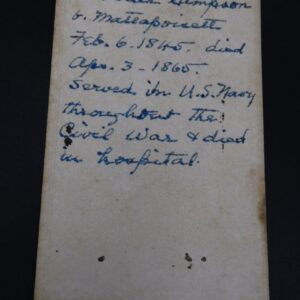 Simpson
b. Mattapoisett
Feb. 6. 1845. died
Apr. 3 - 1865.
Served in U.S. Navy
throughout the
Civil War & died
in hospital.